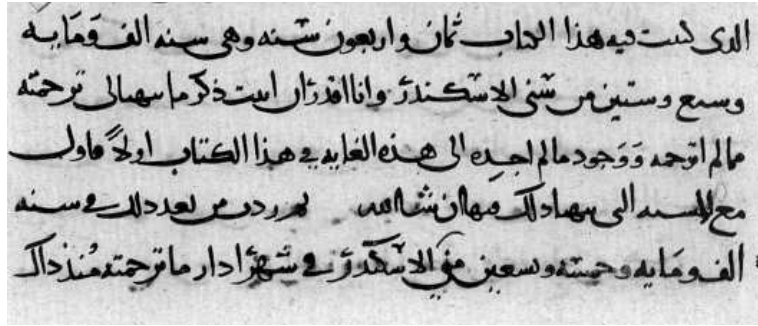 الذى كتبت فيه هذا الكتاب ثمان واربعون سنه وهى سنه الف ومايه
وسبع وستين من سنى الاسكندر وانا اقدر ان اثبت ذكر ما سهالى ترجمته
مما لم اترجمه ووجود ما لم اجده الى هذه الغايه فى هذا الكتاب اولاً فاول
مع السنه التى سها ذلك فيها ان شا الله ثم زدت من بعد ذلك فى سنه
الف ومايه وخمسه وسبعين من الاسكندر فى شهر ادار ما ترجمته منذ ذاك